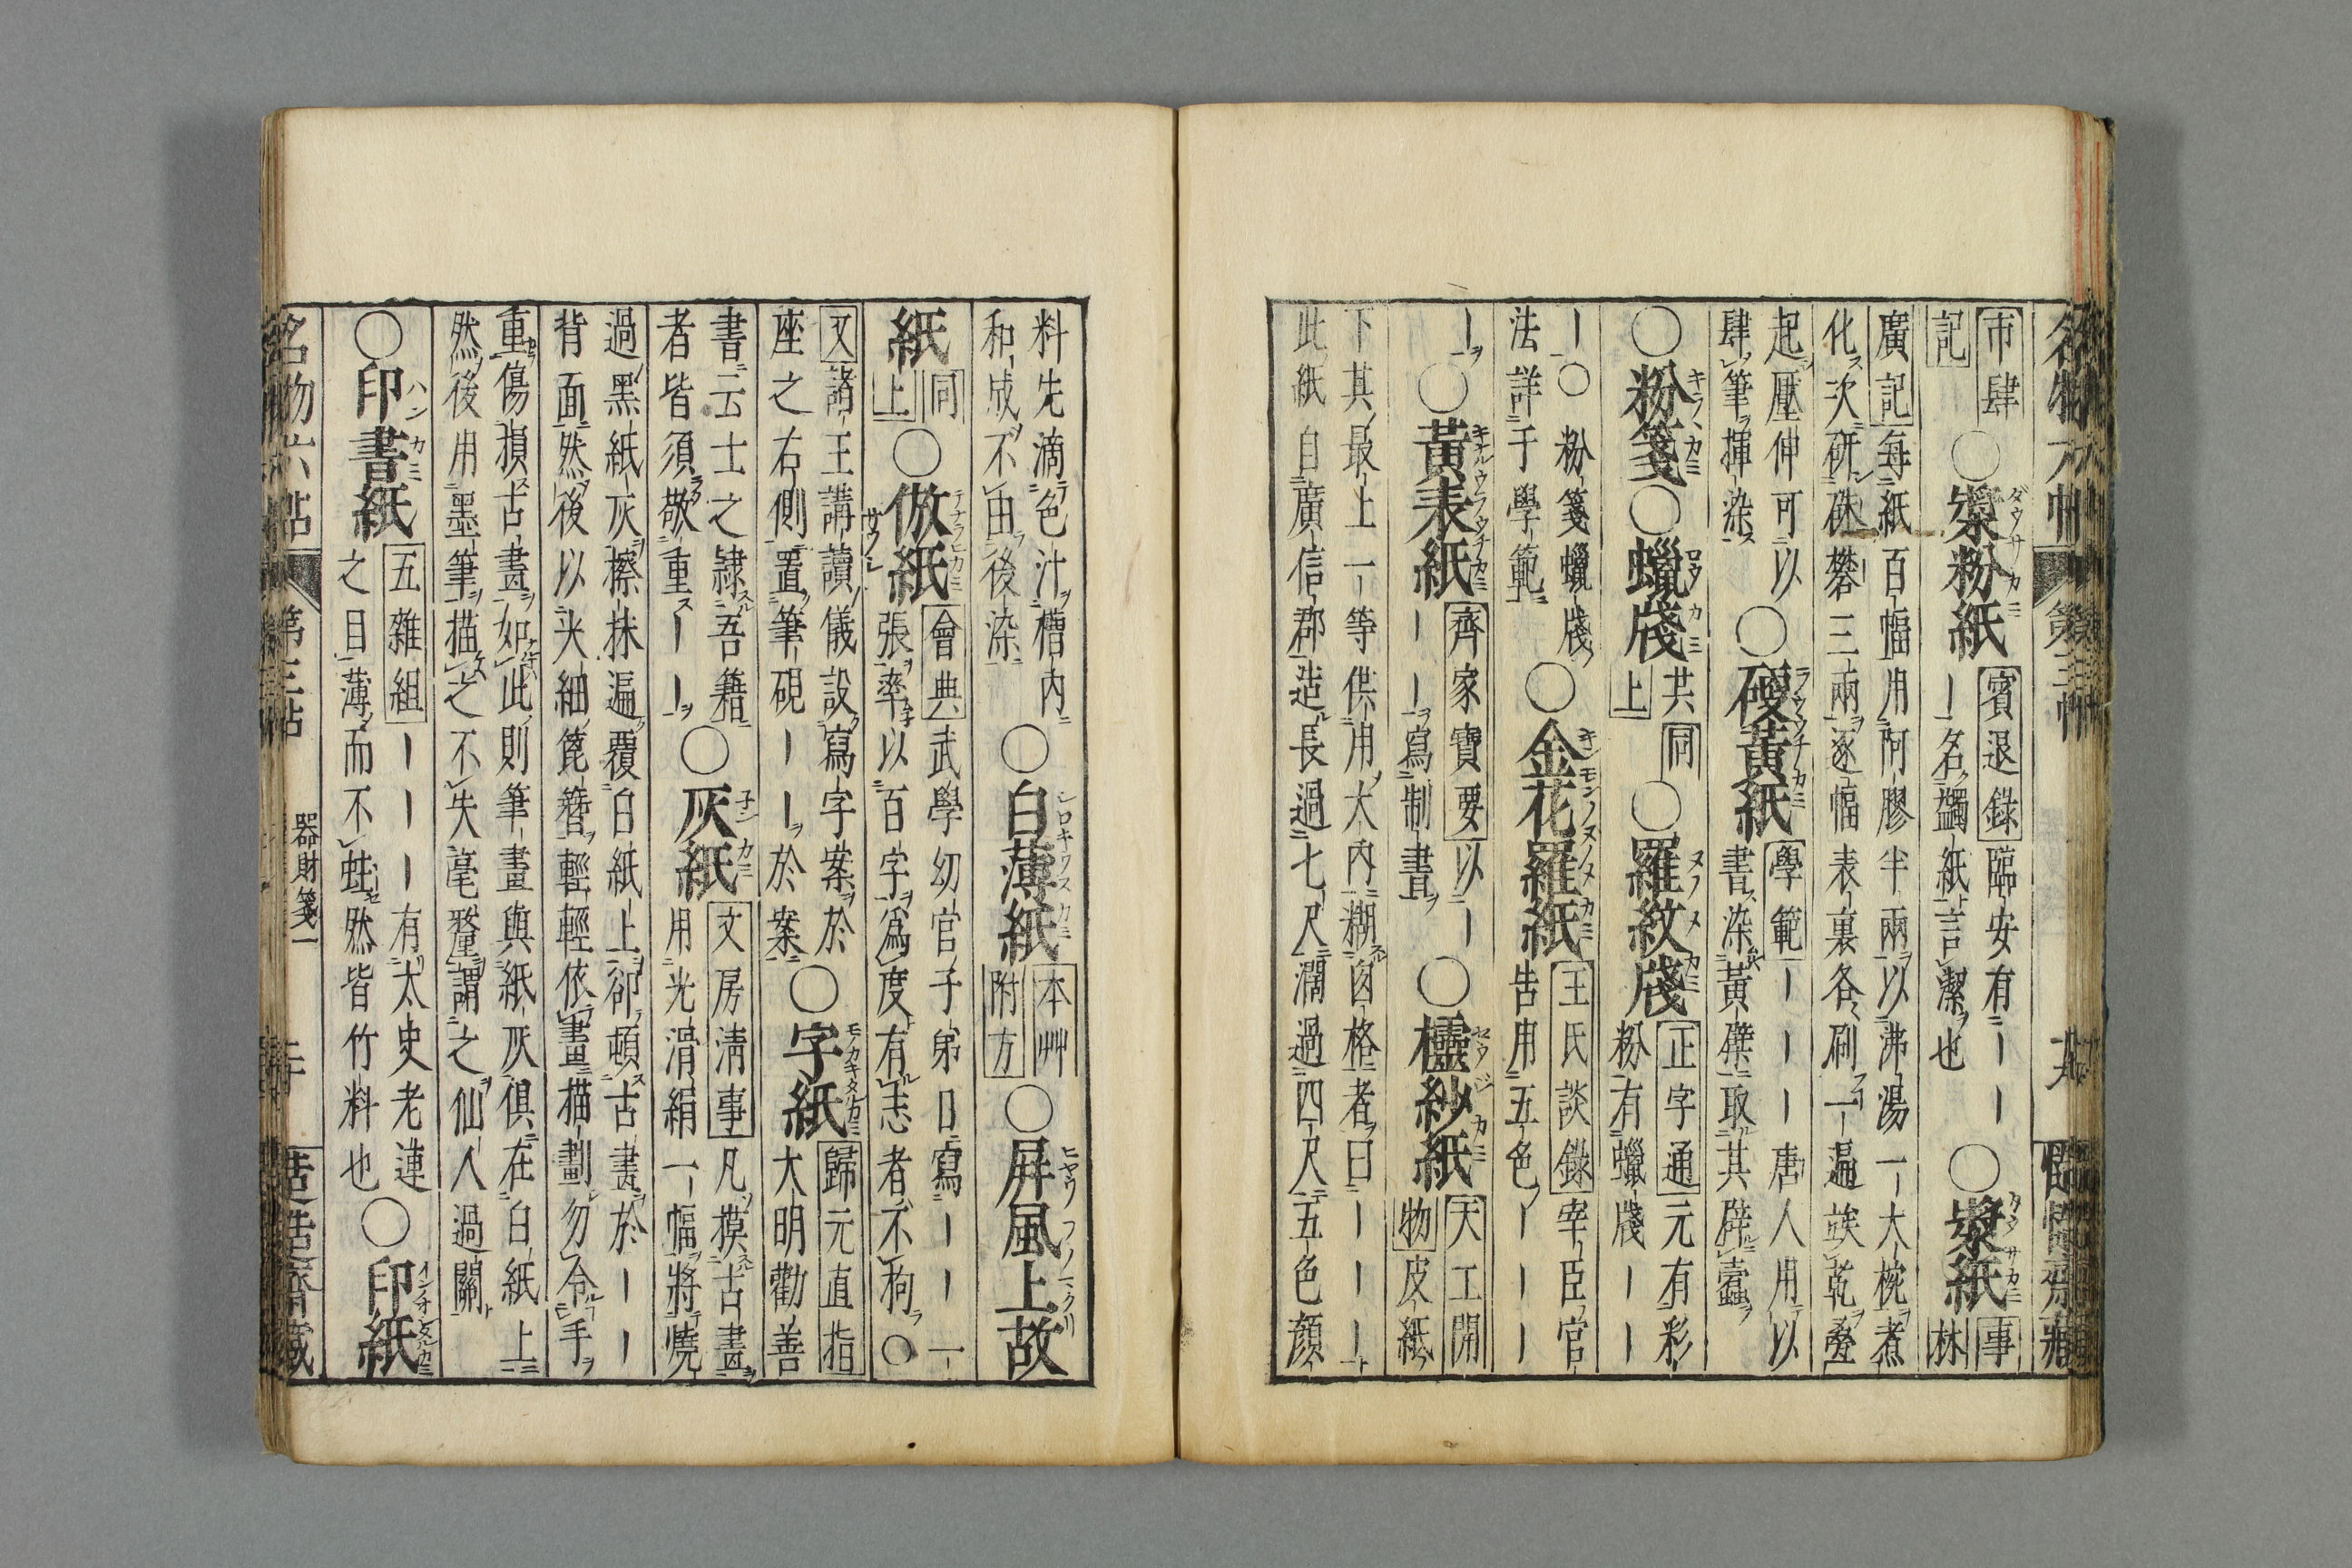 名物六帖 第三帖 十九
市肆
記
○漿粉紙
賓退錄 臨安有｜｜
｜名蠲紙言潔也
○漿紙
事
林
廣記 每紙百幅用阿膠半兩以沸湯一大椀煮
化次研硃礬三兩逐幅表裏各刷一遍竢乾疊
起壓伸可以
肆筆揮染
○硬黃紙
學範 ｜｜｜唐人用以
書染黃蘗取其辟蠹
○粉箋○蠟牋
共同
上
○羅紋牋
正字通 元有彩
粉有蠟牋｜｜
｜○粉箋蠟牋
法詳于學範
○金花羅紙
王氏談錄 宰臣官
告用五色｜｜｜
｜○黃表紙
齊家寶要 以｜
｜｜寫制書
○櫺紗紙
天工開
物 皮紙
下其最上一等供用大內糊窗格者曰｜｜｜
此紙自廣信郡造長過七尺濶過四尺五色顏
料先滴色汁槽內
和成不由後染
○白薄紙
本艸
附方
○屏風上故
紙
同
上
○倣紙
會典 武學幼官子弟日寫｜｜一
張率以百字爲度有志者不拘○
又 諸王講讀儀設寫字案於
座之右側置筆硯｜｜於案
○字紙
歸元直指
大明勸善
書云士之隷吾籍
者皆須敬重｜｜
○灰紙
文房淸事 凡摸古畫
用光滑絹一幅將燒
過黑紙灰擦抹遍覆白紙上卻頓古畫於｜｜
背面然後以尖細篦簪輕輕依畫描劃勿令手
重傷損古畫如此則筆畫與紙灰俱在白紙上
然後用墨筆描之不失毫釐謂之仙人過關
○印書紙
五雜組 ｜｜｜有太史老連
之目薄而不蛀然皆竹料也
○印紙
名物六帖 第三帖 器財箋一